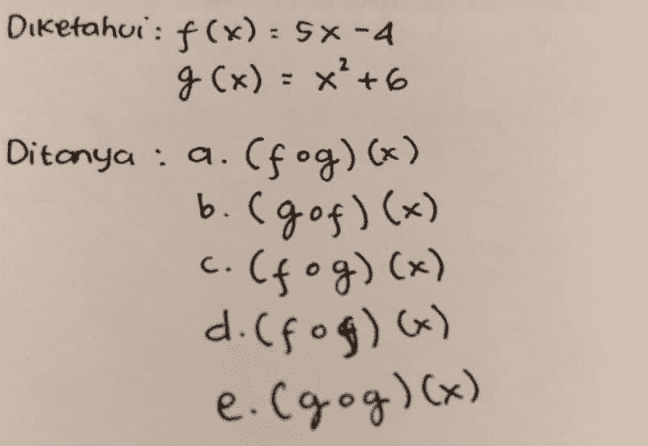 Diketahui : f(x) = 5x - 4
g(x) = x² + 6
Ditanya : a. (f∘g)(x)
b. (g∘f)(x)
c. (f∘g)(x)
d. (f∘f)(x)
e. (g∘g)(x)